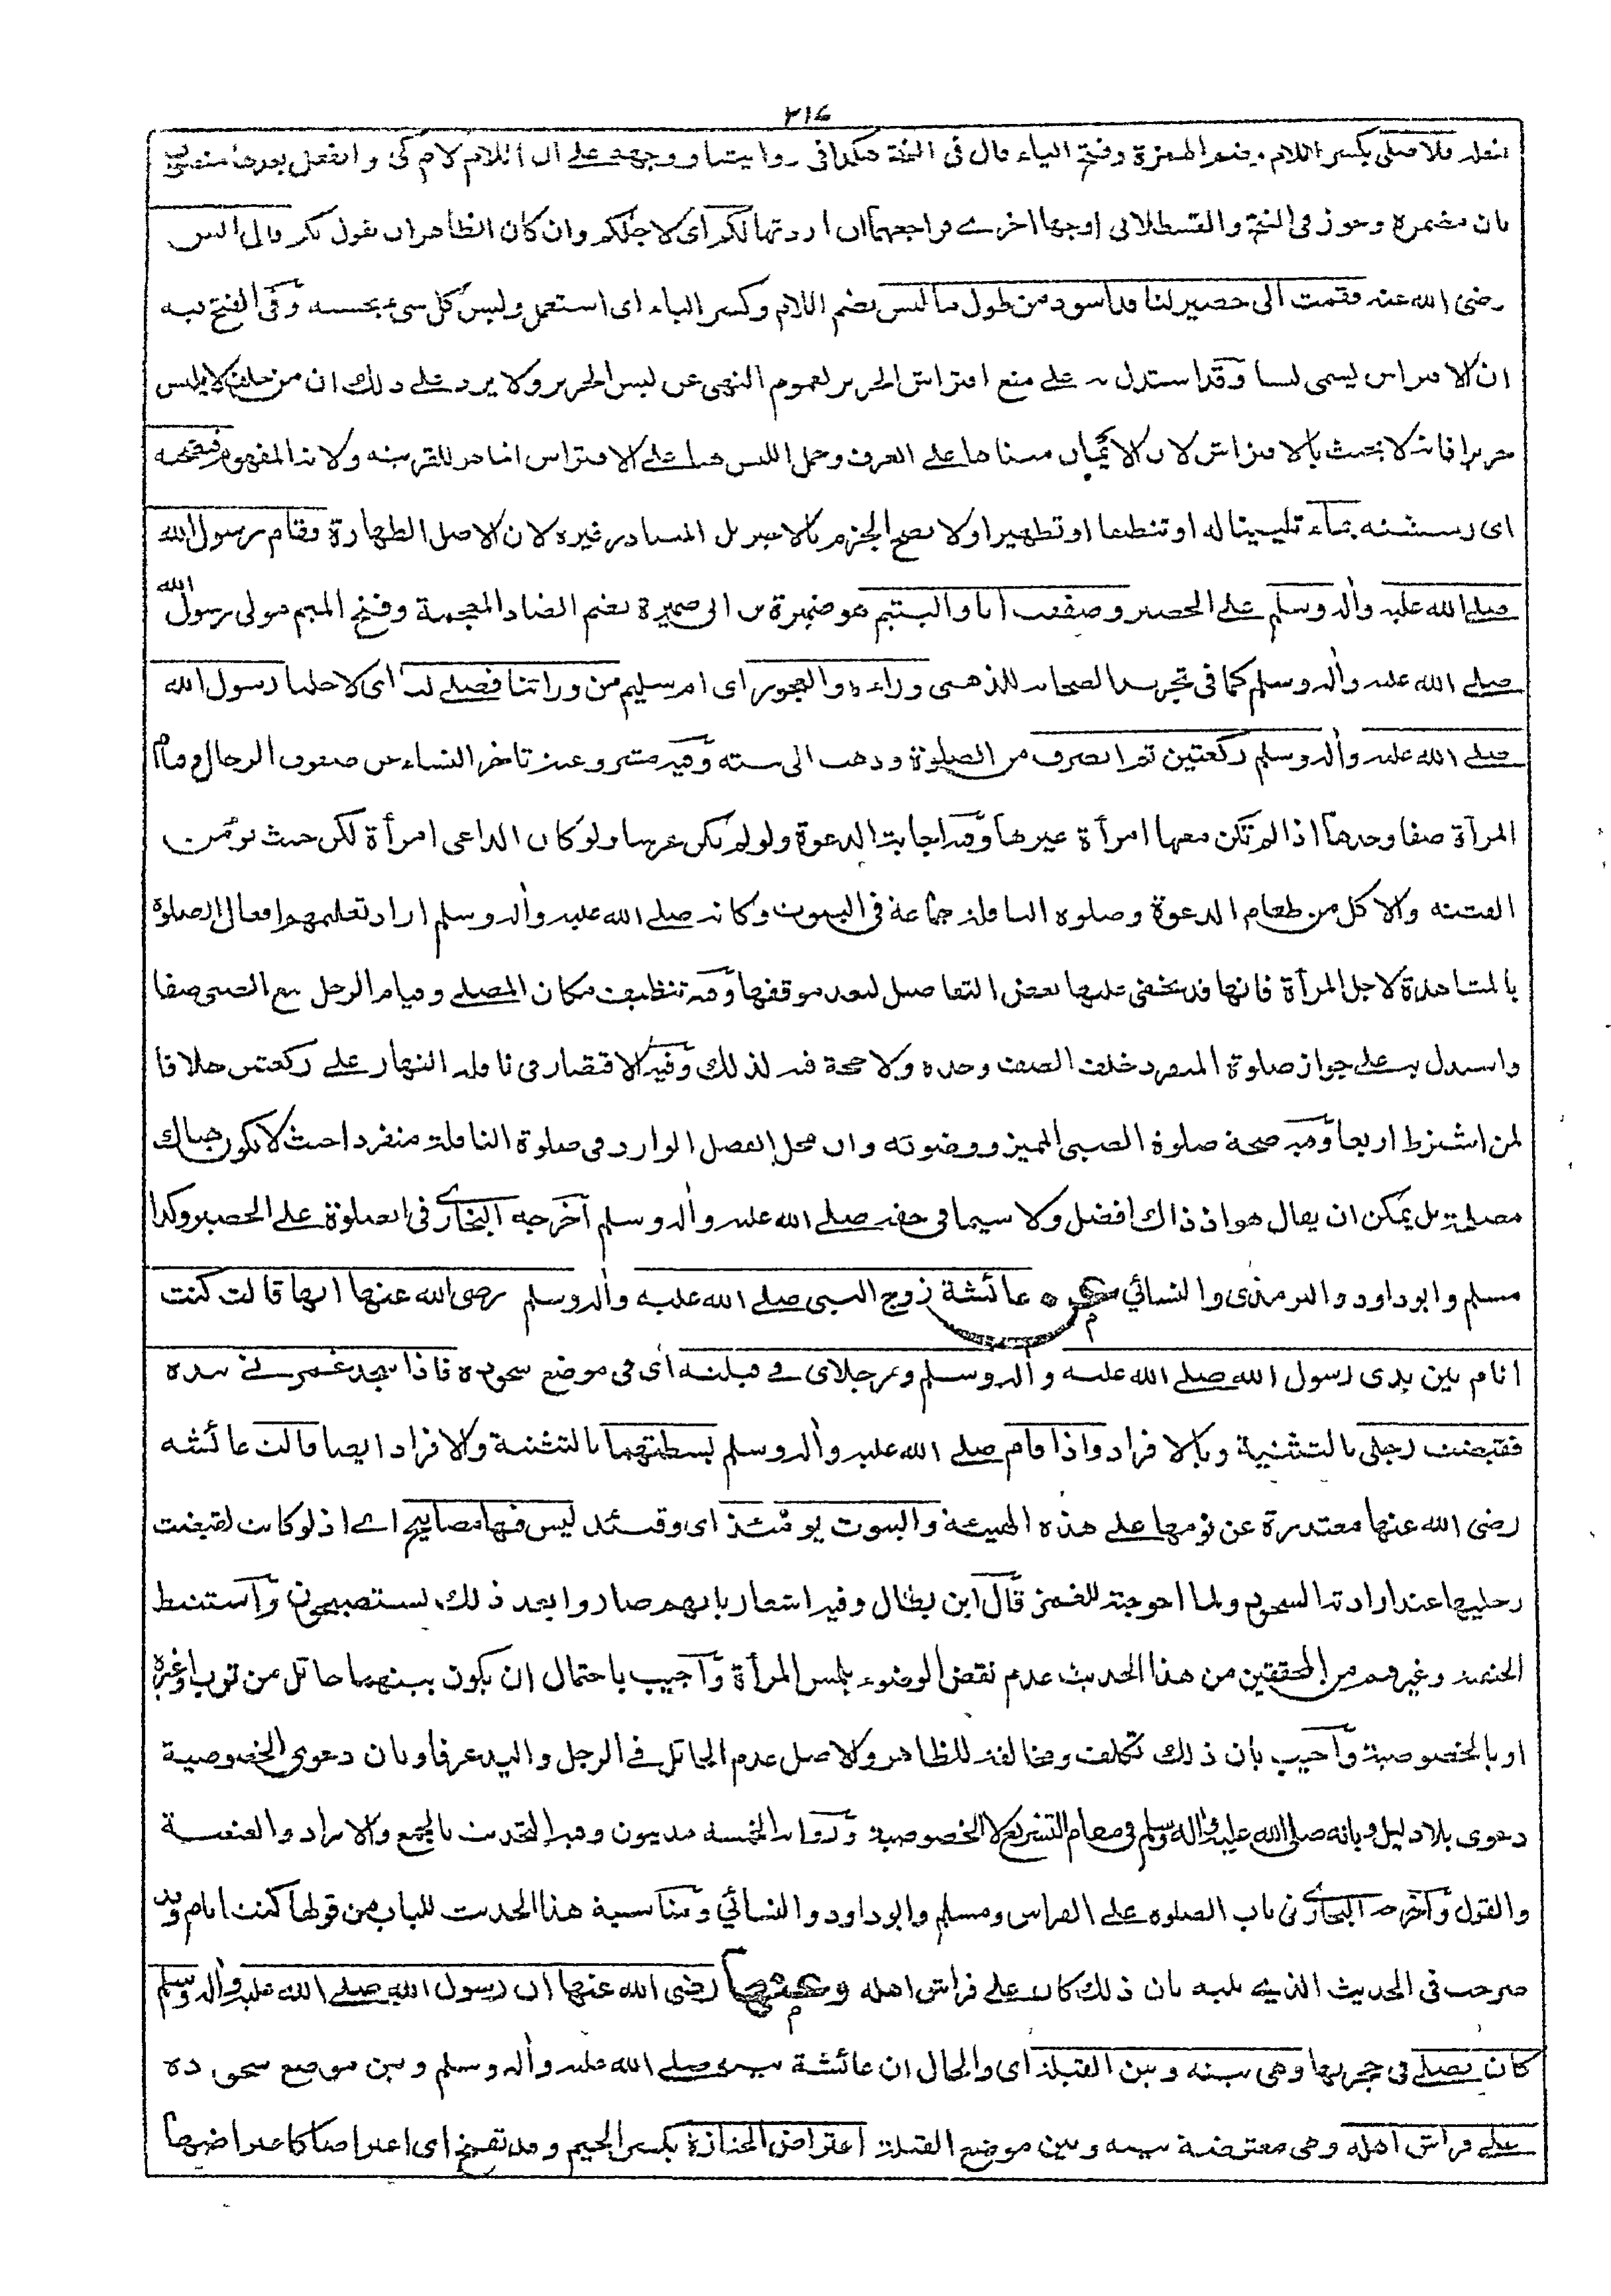 ٢١٤
فلاصلى بكسر اللام وضم الهمزة وفتح الياء قال فى الفتح هكذا فى روايتنا ووجهه على ان اللام لام كى والفعل بعدها منصوب
بان مضمرة وجوز فى الفتح والقسطلانى اوجها اخرى فراجعهما ان اردتها لكم اى لاجلكم وان كان الظاهر ان يقول بكم قال انس
رضى الله عنه فقمت الى حصير لنا قد اسود من طول ما لبس بضم اللام وكسر الباء اى استعمل ولبس كل شئ بحسبه وفى الفتح فيه
ان الافتراش يسمى لبسا وقد استدل به على منع افتراش الحرير لعموم النهى عن لبس الحرير ولا يرد على ذلك ان من حلف لا يلبس
حريرا فانه لا يحنث بالافتراش لان الايمان مبناها على العرف وحمل اللبس هنا على الافتراش انما هو للقرينة ولانه المفهوم فنضحته
اى رششته بماء تليينا له او تنظيفا او تطهيرا ولا يصح الجزم بالاخير بل المتبادر غيره لان الاصل الطهارة وقام رسول الله
صلى الله عليه وآله وسلم على الحصير وصففت انا واليتيم هو ضميرة بن ابى ضميرة بضم الضاد المعجمة وفتح الميم مولى رسول الله
صلى الله عليه وآله وسلم كما فى تجريد الصحابة للذهبى وراءه والعجوز اى ام سليم من ورائنا فصلى لنا اى لاجلنا رسول الله
صلى الله عليه وآله وسلم ركعتين ثم انصرف من الصلوة وذهب الى بيته وفيه مشروعية تاخر النساء عن صفوف الرجال وقيام
المرأة صفا وحدها اذا لم تكن معها امرأة غيرها وفيه اجابة الدعوة ولو لم يكن عرسا ولو كان الداعى امرأة لكن حيث تؤمن
الفتنة والاكل من طعام الدعوة وصلوة النافلة جماعة فى البيوت وكانه صلى الله عليه وآله وسلم اراد تعليمهم افعال الصلوة
بالمشاهدة لاجل المرأة فانها قد يخفى عليها بعض التفاصيل لبعد موقفها وفيه تنظيف مكان المصلى وقيام الرجل مع الصبى صفا
واستدل به على جواز صلوة المنفرد خلف الصف وحده ولا حجة فيه لذلك وفيه الاقتصار فى نافلة النهار على ركعتين خلافا
لمن اشترط اربعا وفيه صحة صلوة الصبى المميز ووضوئه وان محل الفضل الوارد فى صلوة النافلة منفردا حيث لا يكون هناك
مصلحة بل يمكن ان يقال هو اذ ذاك افضل ولا سيما فى حقه صلى الله عليه وآله وسلم اخرجه البخارى فى الصلوة على الحصير وكذا
مسلم وابو داود والترمذى والنسائي عن عائشة زوج النبى صلى الله عليه وآله وسلم رضى الله عنها انها قالت كنت
انام بين يدى رسول الله صلى الله عليه وآله وسلم ورجلاى فى قبلته اى فى موضع سجوده فاذا سجد غمزنى بيده
فقبضت رجلى بالتثنية وبالافراد واذا قام صلى الله عليه وآله وسلم بسطتهما بالتثنية والافراد ايضا قالت عائشة
رضى الله عنها معتذرة عن نومها على هذه الهيئة والبيوت يومئذ اى وقتئذ ليس فيها مصابيح اى اذ لو كانت لقبضت
رجليها عند ارادته السجود ولما احوجته للغمز قال ابن بطال وفيه اشعار بانهم صاروا بعد ذلك يستصبحون واستنبط
الحنفية وغيرهم من المحققين من هذا الحديث عدم نقض الوضوء بلمس المرأة واجيب باحتمال ان يكون بينهما حائل من ثوب او غيره
او بالخصوصية واجيب بان ذلك تكلف ومخالفة للظاهر والاصل عدم الحائل فى الرجل واليد عرفا وبان دعوى الخصوصية
دعوى بلا دليل وبانه صلى الله عليه وآله وسلم فى مقام التشريع لا الخصوصية ورواته الخمسة مدنيون وفيه التحديث بالجمع والافراد والعنعنة
والقول واخرجه البخارى فى باب الصلوة على الفراش ومسلم وابو داود والنسائي ومناسبة هذا الحديث للباب من قولها كنت انام وقد
صرحت فى الحديث الذى يليه بان ذلك كان على فراش اهله وعنها رضى الله عنها ان رسول الله صلى الله عليه وآله وسلم
كان يصلى فى حجرتها وهى بينه وبين القبلة اى والحال ان عائشة بينه صلى الله عليه وآله وسلم وبين موضع سجوده
على فراش اهله وهى معترضة بينه وبين موضع القبلة اعتراض الجنازة بكسر الجيم وقد تفتح اى اعتراضا كاعتراضها